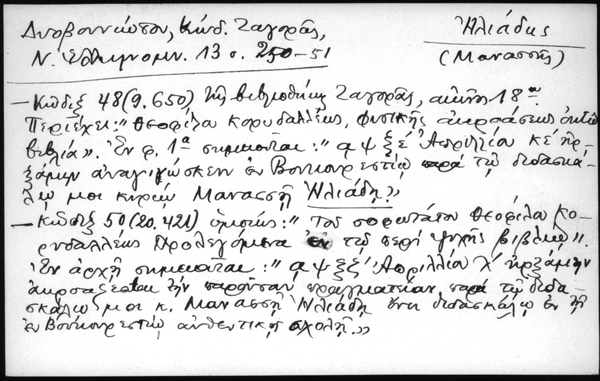 Δυοβουνιώτου, Κώδ. Ζαγορᾶς,
Ν. Ἑλληνομν. 13 σ. 250-51
Ἠλιάδης
(Μανασσῆς)
— Κώδιξ 48 (9.650) τῆς βιβλιοθήκης Ζαγορᾶς, αἰῶνος 18ου.
Περιέχει: "Θεοφίλου Κορυδαλλέως, φυσικῆς ἀκροάσεως ὀκτὼ
βιβλία». Ἐν φ. 1α σημειοῦται: "αψξε´ Ἀπριλίου κε´ ἠρ-
ξάμην ἀναγιγνώσκειν ἐν Βουκουρεστίῳ παρὰ τῷ διδασκά-
λῳ μοι κυρίῳ Μανασσῇ Ἠλιάδῃ»
— Κώδιξ 50 (20.421) ὁμοίως: "Τοῦ σοφωτάτου Θεοφίλου Κο-
ρυδαλλέως Προλεγόμενα ἐν τῷ περὶ ψυχῆς βιβλίῳ".
Ἐν ἀρχῇ σημειοῦται: "αψξξ´ Ἀπριλλίου λ´ ἠρξάμην
ἀκροάζεσθαι τὴν παροῦσαν πραγματείαν παρὰ τῷ διδα-
σκάλῳ μοι κ. Μανασσῇ Ἠλιάδῃ διδασκάλῳ ἐν τῇ
ἐν Βουκουρεστίῳ αὐθεντικῇ σχολῇ.»